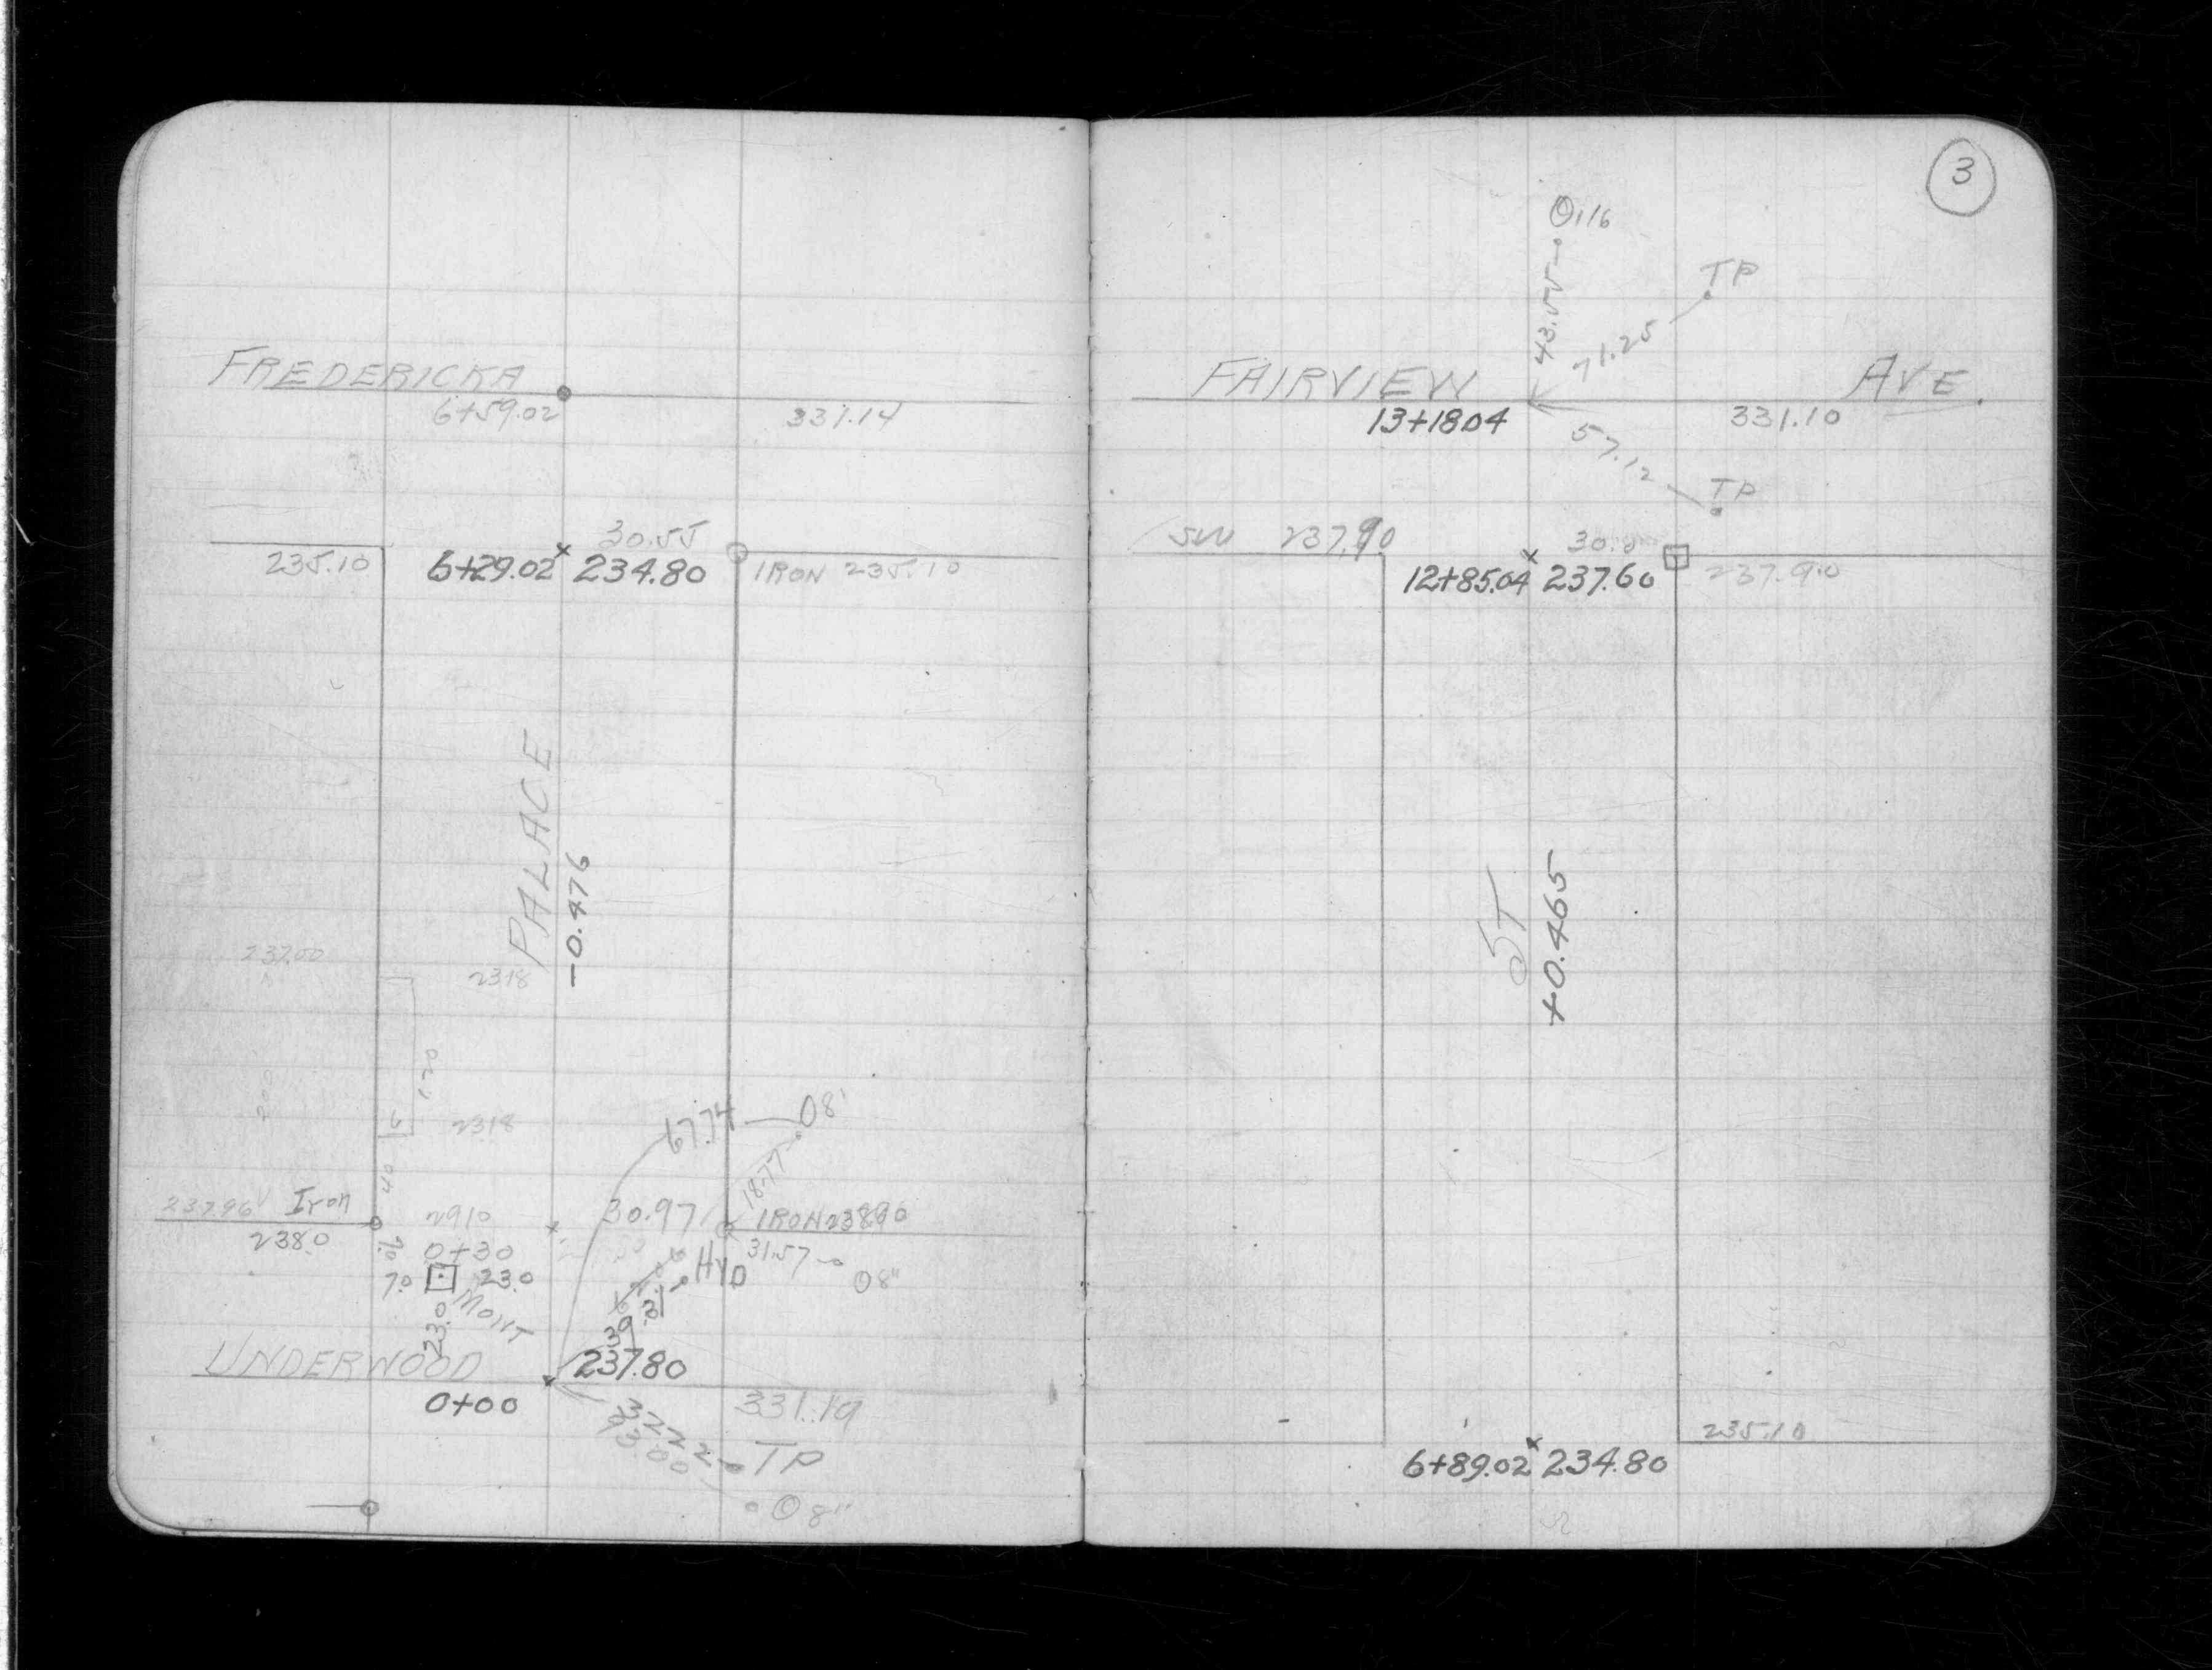 FREDERICKA
6+59.02 331.14
30.55
235.10 6+29.02 234.80 IRON 235.10
PALACE
-0.476
237.00
2318
120
2318
67.74 O8'
18.77
40
237.96 Iron 2910 30.97 IRON 238.90
238.0 7.0 0+30 HYD 31.57 O8"
7.0 23.0
MONT
23.0
39.31
UNDERWOOD 237.80
0+00 331.19
32.22 TP
93.00 O8"
3
O116
43.55
TP
71.25
FAIRVIEW AVE.
13+18.04 331.10
57.12
TP
SW 237.90
12+85.04 237.60 237.90
ST
+0.465
235.10
6+89.02 234.80